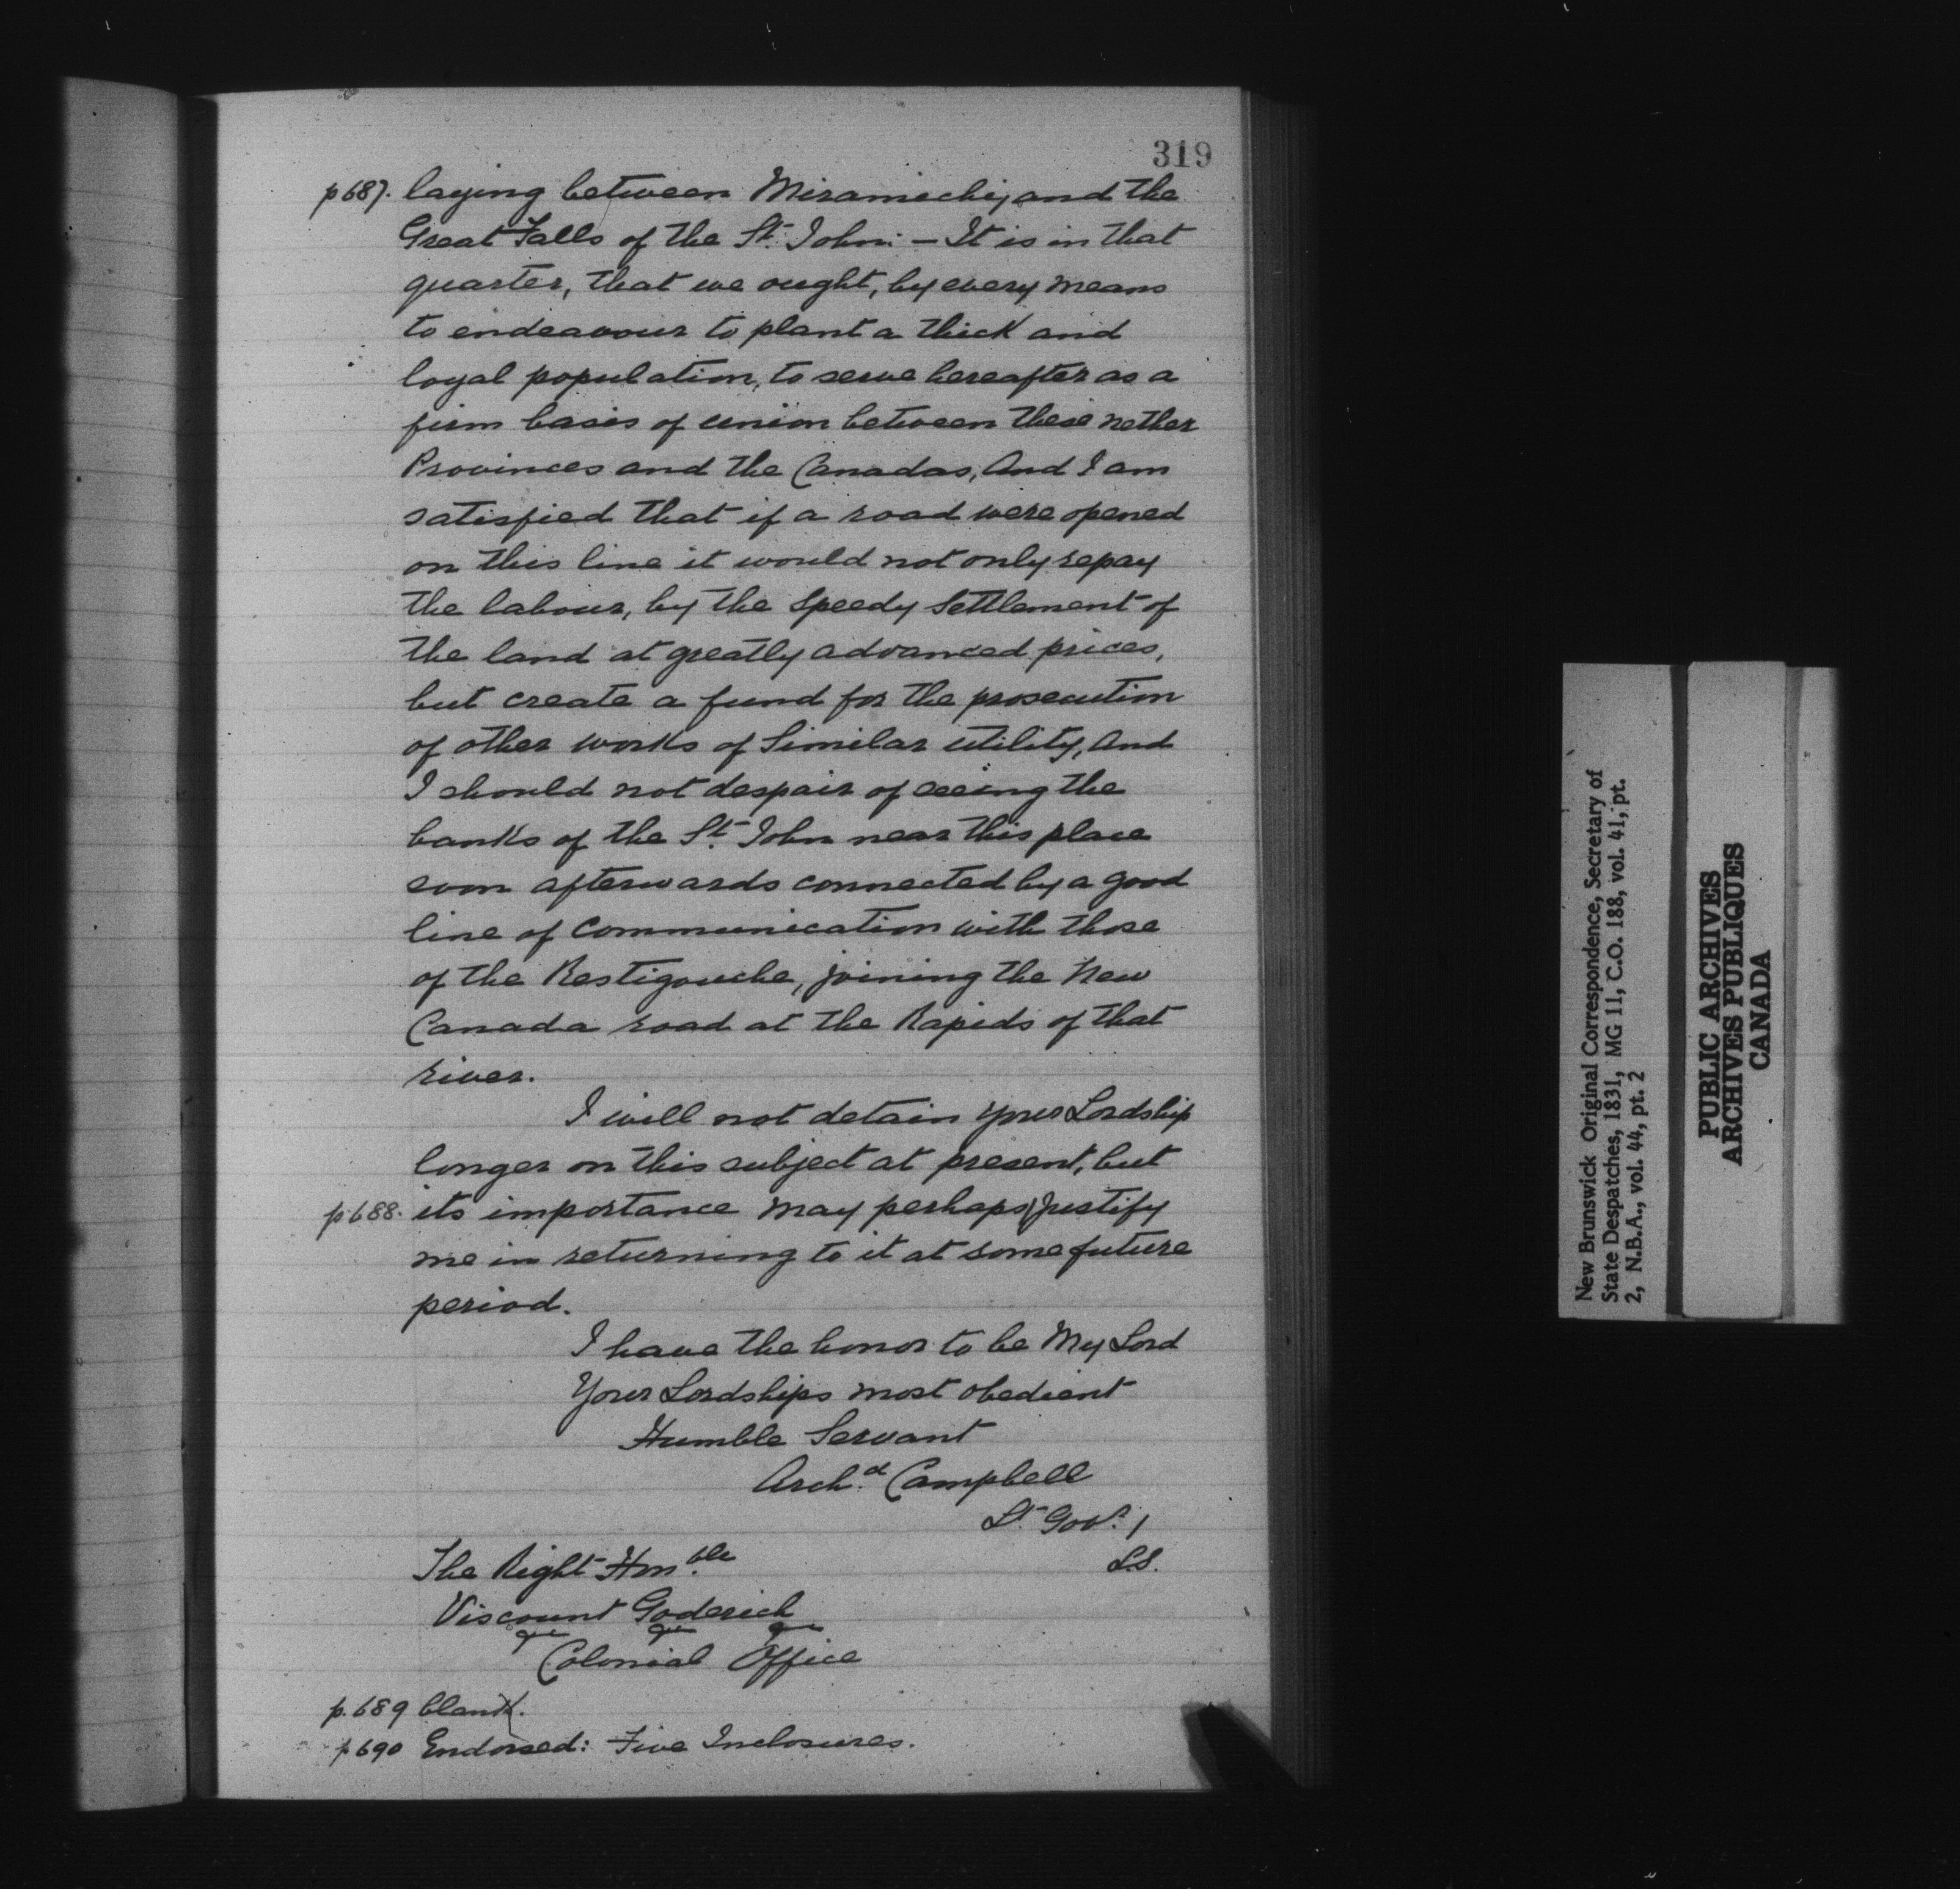 319
p 687. laying between Miramichi, and the
Great Falls of the St. John: — It is in that
quarter, that we ought, by every means
to endeavour to plant a thick and
loyal population, to serve hereafter as a
firm basis of union between these nether
Provinces and the Canadas, And I am
satisfied that if a road were opened
on this line it would not only repay
the labour, by the Speedy Settlement of
the land at greatly advanced prices,
but create a fund for the prosecution
of other works of Similar utility, And
I should not despair of seeing the
banks of the St. John near this place
soon afterwards connected by a good
line of Communication with those
of the Restigouche, joining the New
Canada road at the Rapids of that
river.
I will not detain Your Lordship
longer on this subject at present, but
p. 688. its importance may perhaps justify
me in returning to it at some future
period.
I have the honor to be My Lord
Your Lordships most obedient
Humble Servant
Archd. Campbell
Lt. Govr. /
L.S.
The Right Honble.
Viscount Goderich
Colonial Office
p. 689 blank.
p. 690 Endorsed: Five Inclosures.
New Brunswick Original Correspondence, Secretary of
State Despatches, 1831, MG 11, C.O. 188, vol. 41, pt.
2, N.B.A., vol. 44, pt. 2
PUBLIC ARCHIVES
ARCHIVES PUBLIQUES
CANADA